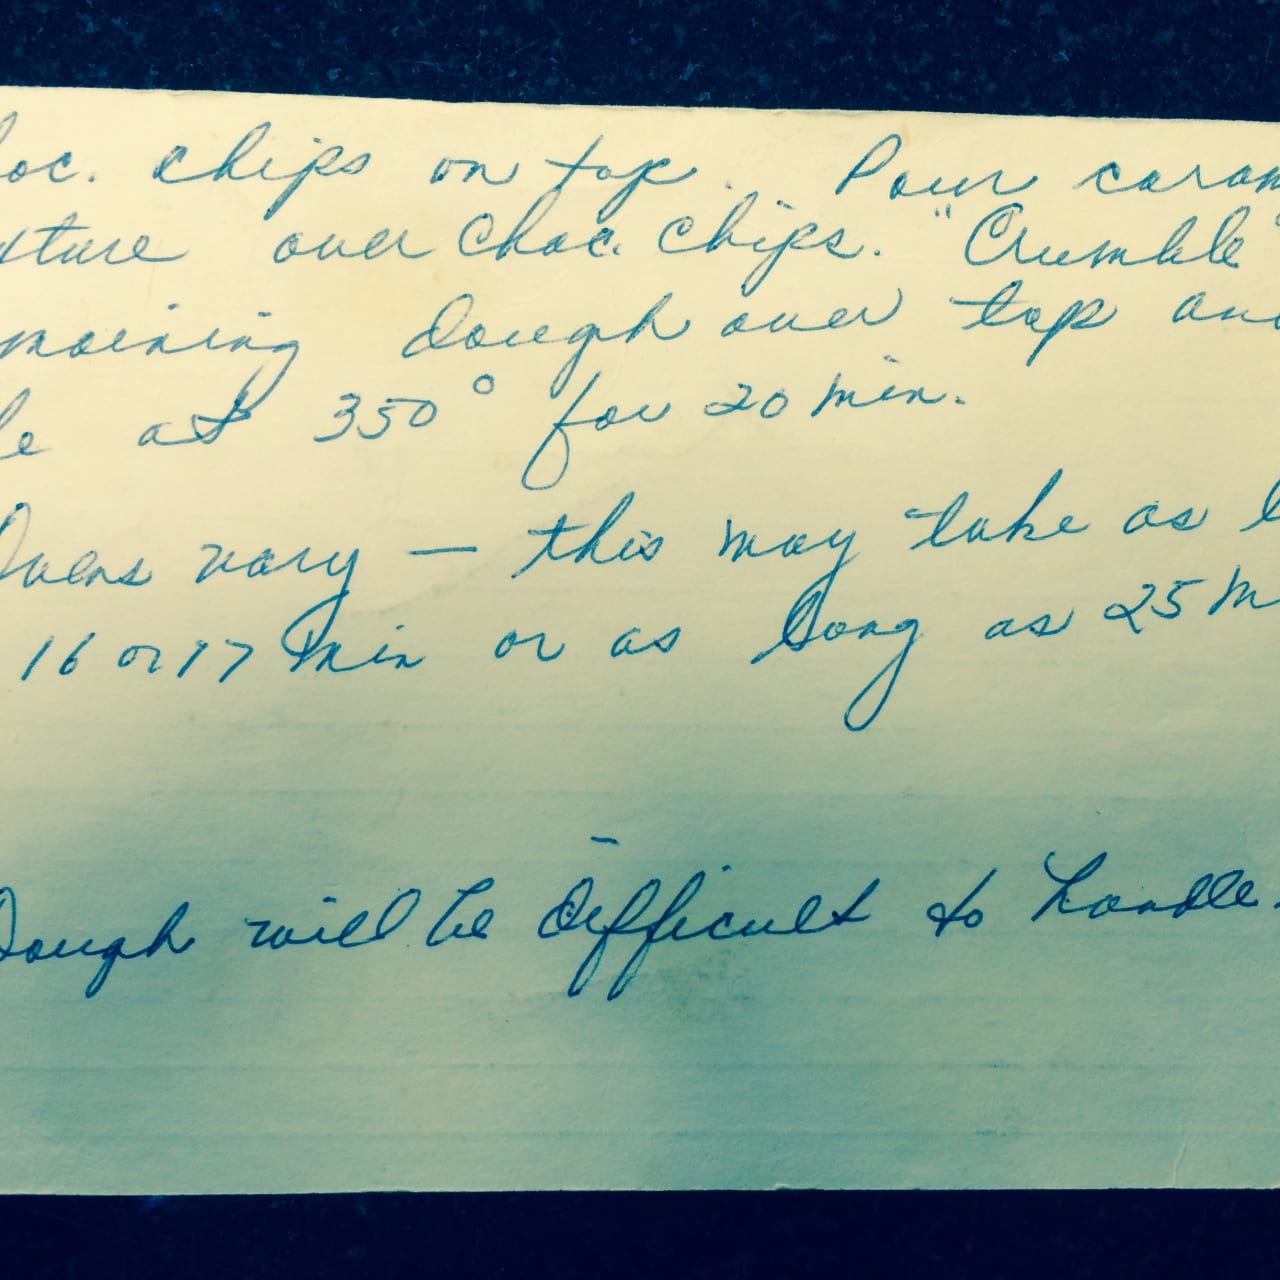 oc. chips on top. Pour caram
xture over Choc. Chips. "Crumble"
maining dough over top and
le at 350° for 20 min.
Ovens vary — this may take as l
16 or 17 min or as long as 25 m
Dough will be difficult to handle.